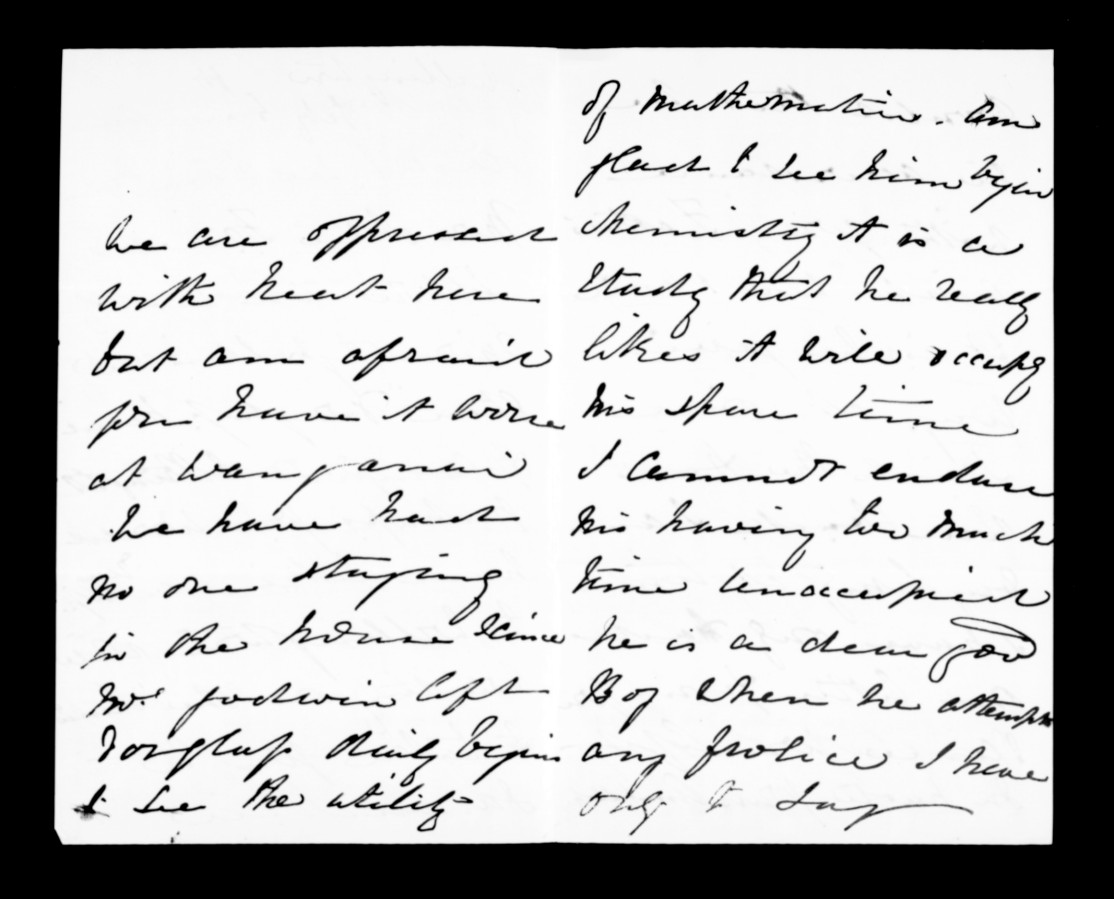 We are oppressed
with heat here
but am afraid
you have it worse
at Wanganui
We have had
no one staying
in the house since
Mrs godwin left
Douglas daily begins
to see the utility
of mathematics. am
glad to see him begin
chemistry it is a
study that he really
likes it will occupy
his spare time
I cannot endure
his having too much
time unoccupied
he is a dear good
Boy when he attempts
any frolics I have
only to say